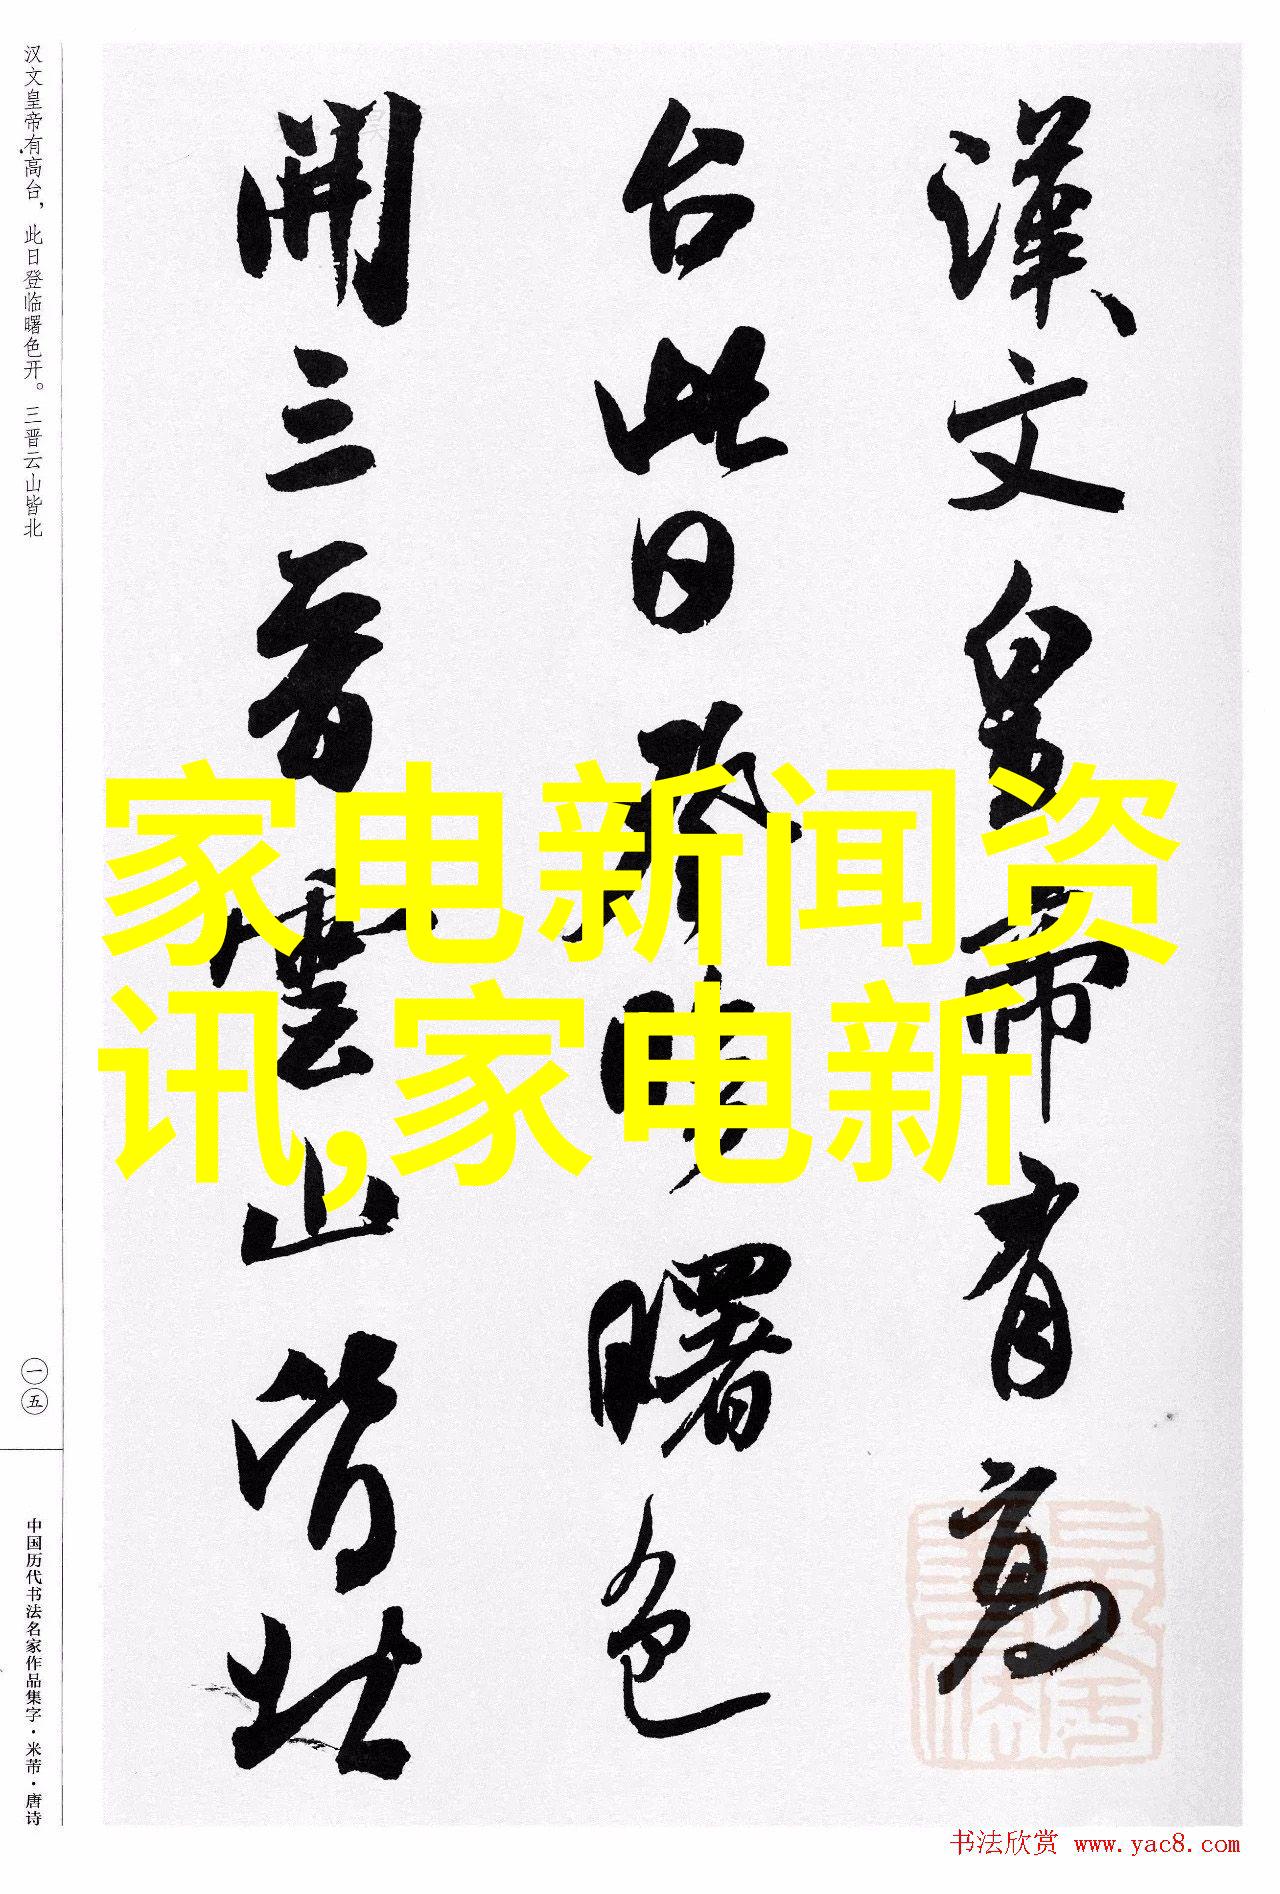 漢文皇帝有高
台此日登臨曙色
開三晋雲山皆北
家电新闻资
讯,家电新
汉文皇帝有高台，此日登临曙色开。三晋云山皆北
一五
中国历代书法名家作品集字·米芾·唐诗
书法欣赏 www.yac8.com